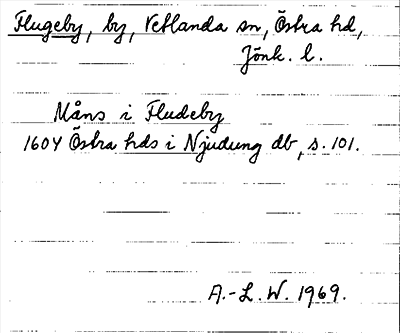 Flugeby, by, Vetlanda sn, Östra hd,
Jönk. l.
Måns i Fludeby
1604 Östra hds i Njudung db, s. 101.
A.-L. W. 1969.